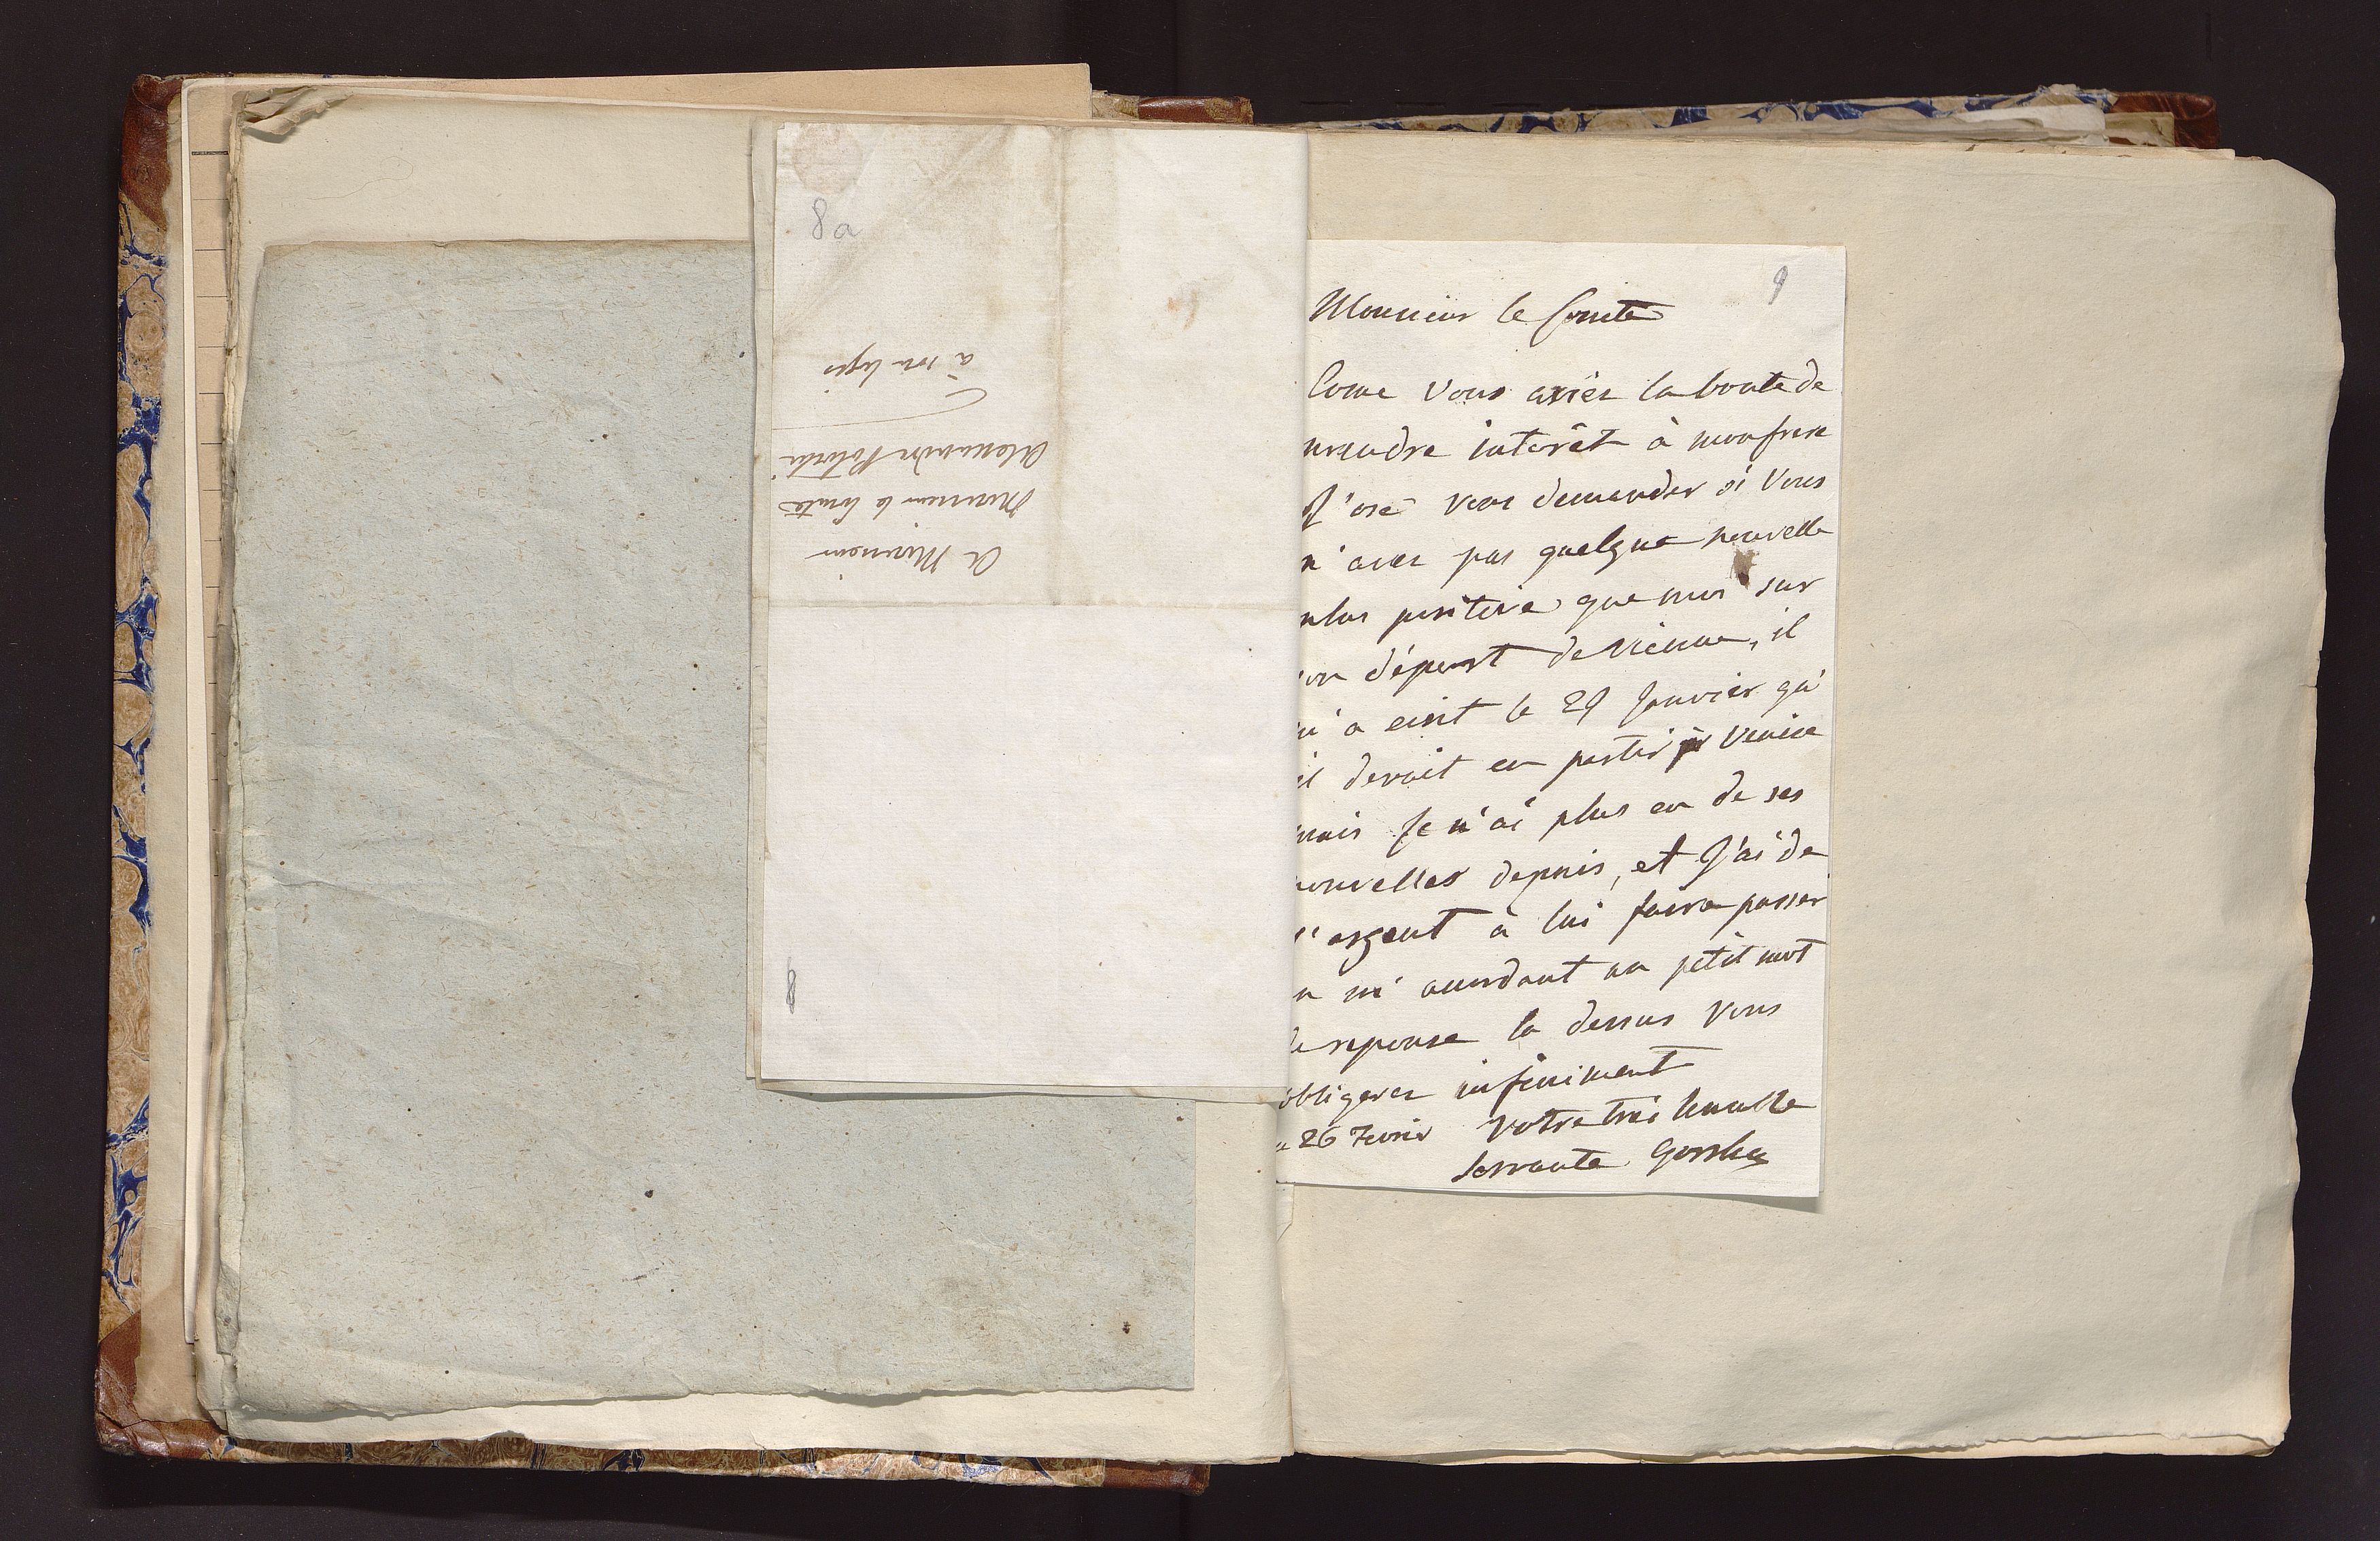 8a
A Monsieur
Monsieur le Comte
Alexandre Potocki
à son logis
8
9
Monsieur le Comte
Come Vous aviéz la bonte de
prendre interêt à mon frere
J'ose vous demander si Vous
n'avez pas quelque nouvelle
plus positive que moi sur
son départ de Vienne, il
m'a ecrit le 29 Janvier qu'
il devoit en partir pr Venise
mais Je n'ai plus eu de ses
nouvelles depuis, et J'ai de
l'argent à lui faire passer
en m'accordant un petit mot
de reponse la dessus Vous
obligerez infiniment
26 Fevrier Votre très humble
Servante